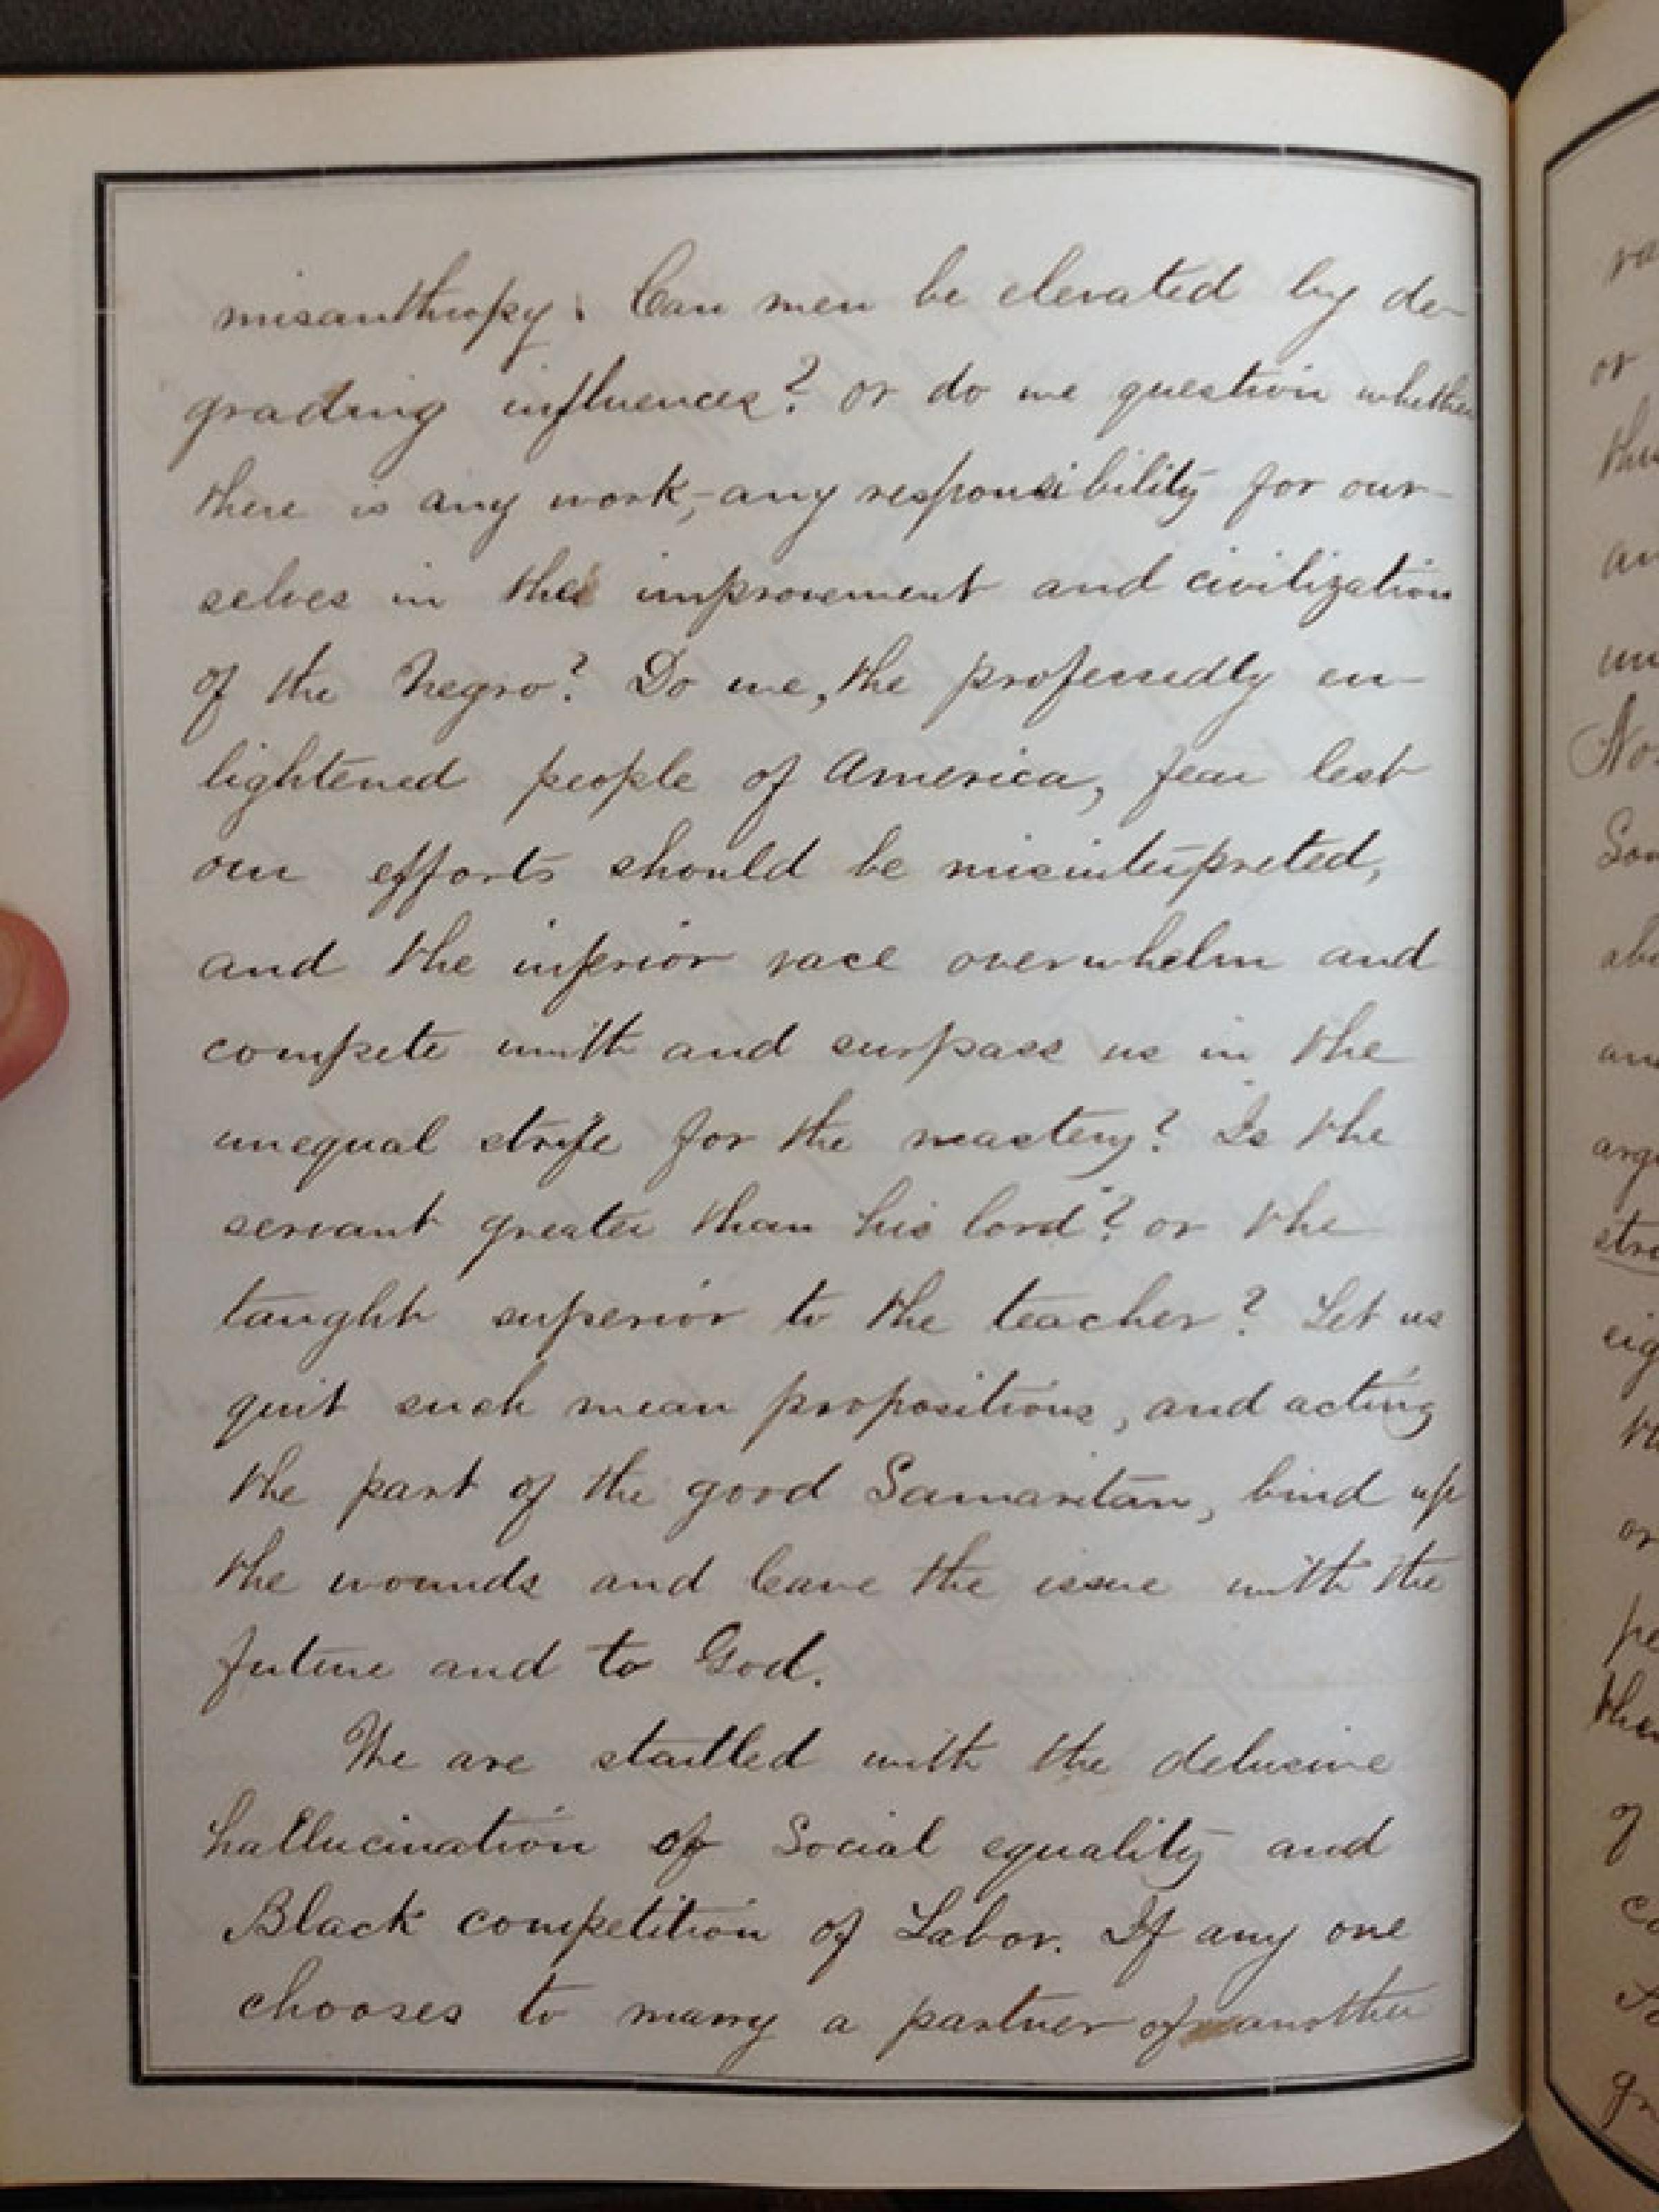 misanthropy. Can men be elevated by de-
grading influences? or do we question whether
there is any work,-any responsibility for our-
selves in the improvement and civilization
of the Negro? Do we, the professedly en-
lightened people of America, fear lest
our efforts should be misinterpreted,
and the inferior race overwhelm and
compete with and surpass us in the
unequal strife for the mastery? Is the
servant greater than his lord? or the
taught superior to the teacher? Let us
quit such mean propositions, and acting
the part of the good Samaritan, bind up
the wounds and leave the issue with the
future and to God.
We are startled with the delusive
hallucination of Social equality and
Black competition of Labor. If any one
chooses to marry a partner of another
or
an
Nor
and
or
of